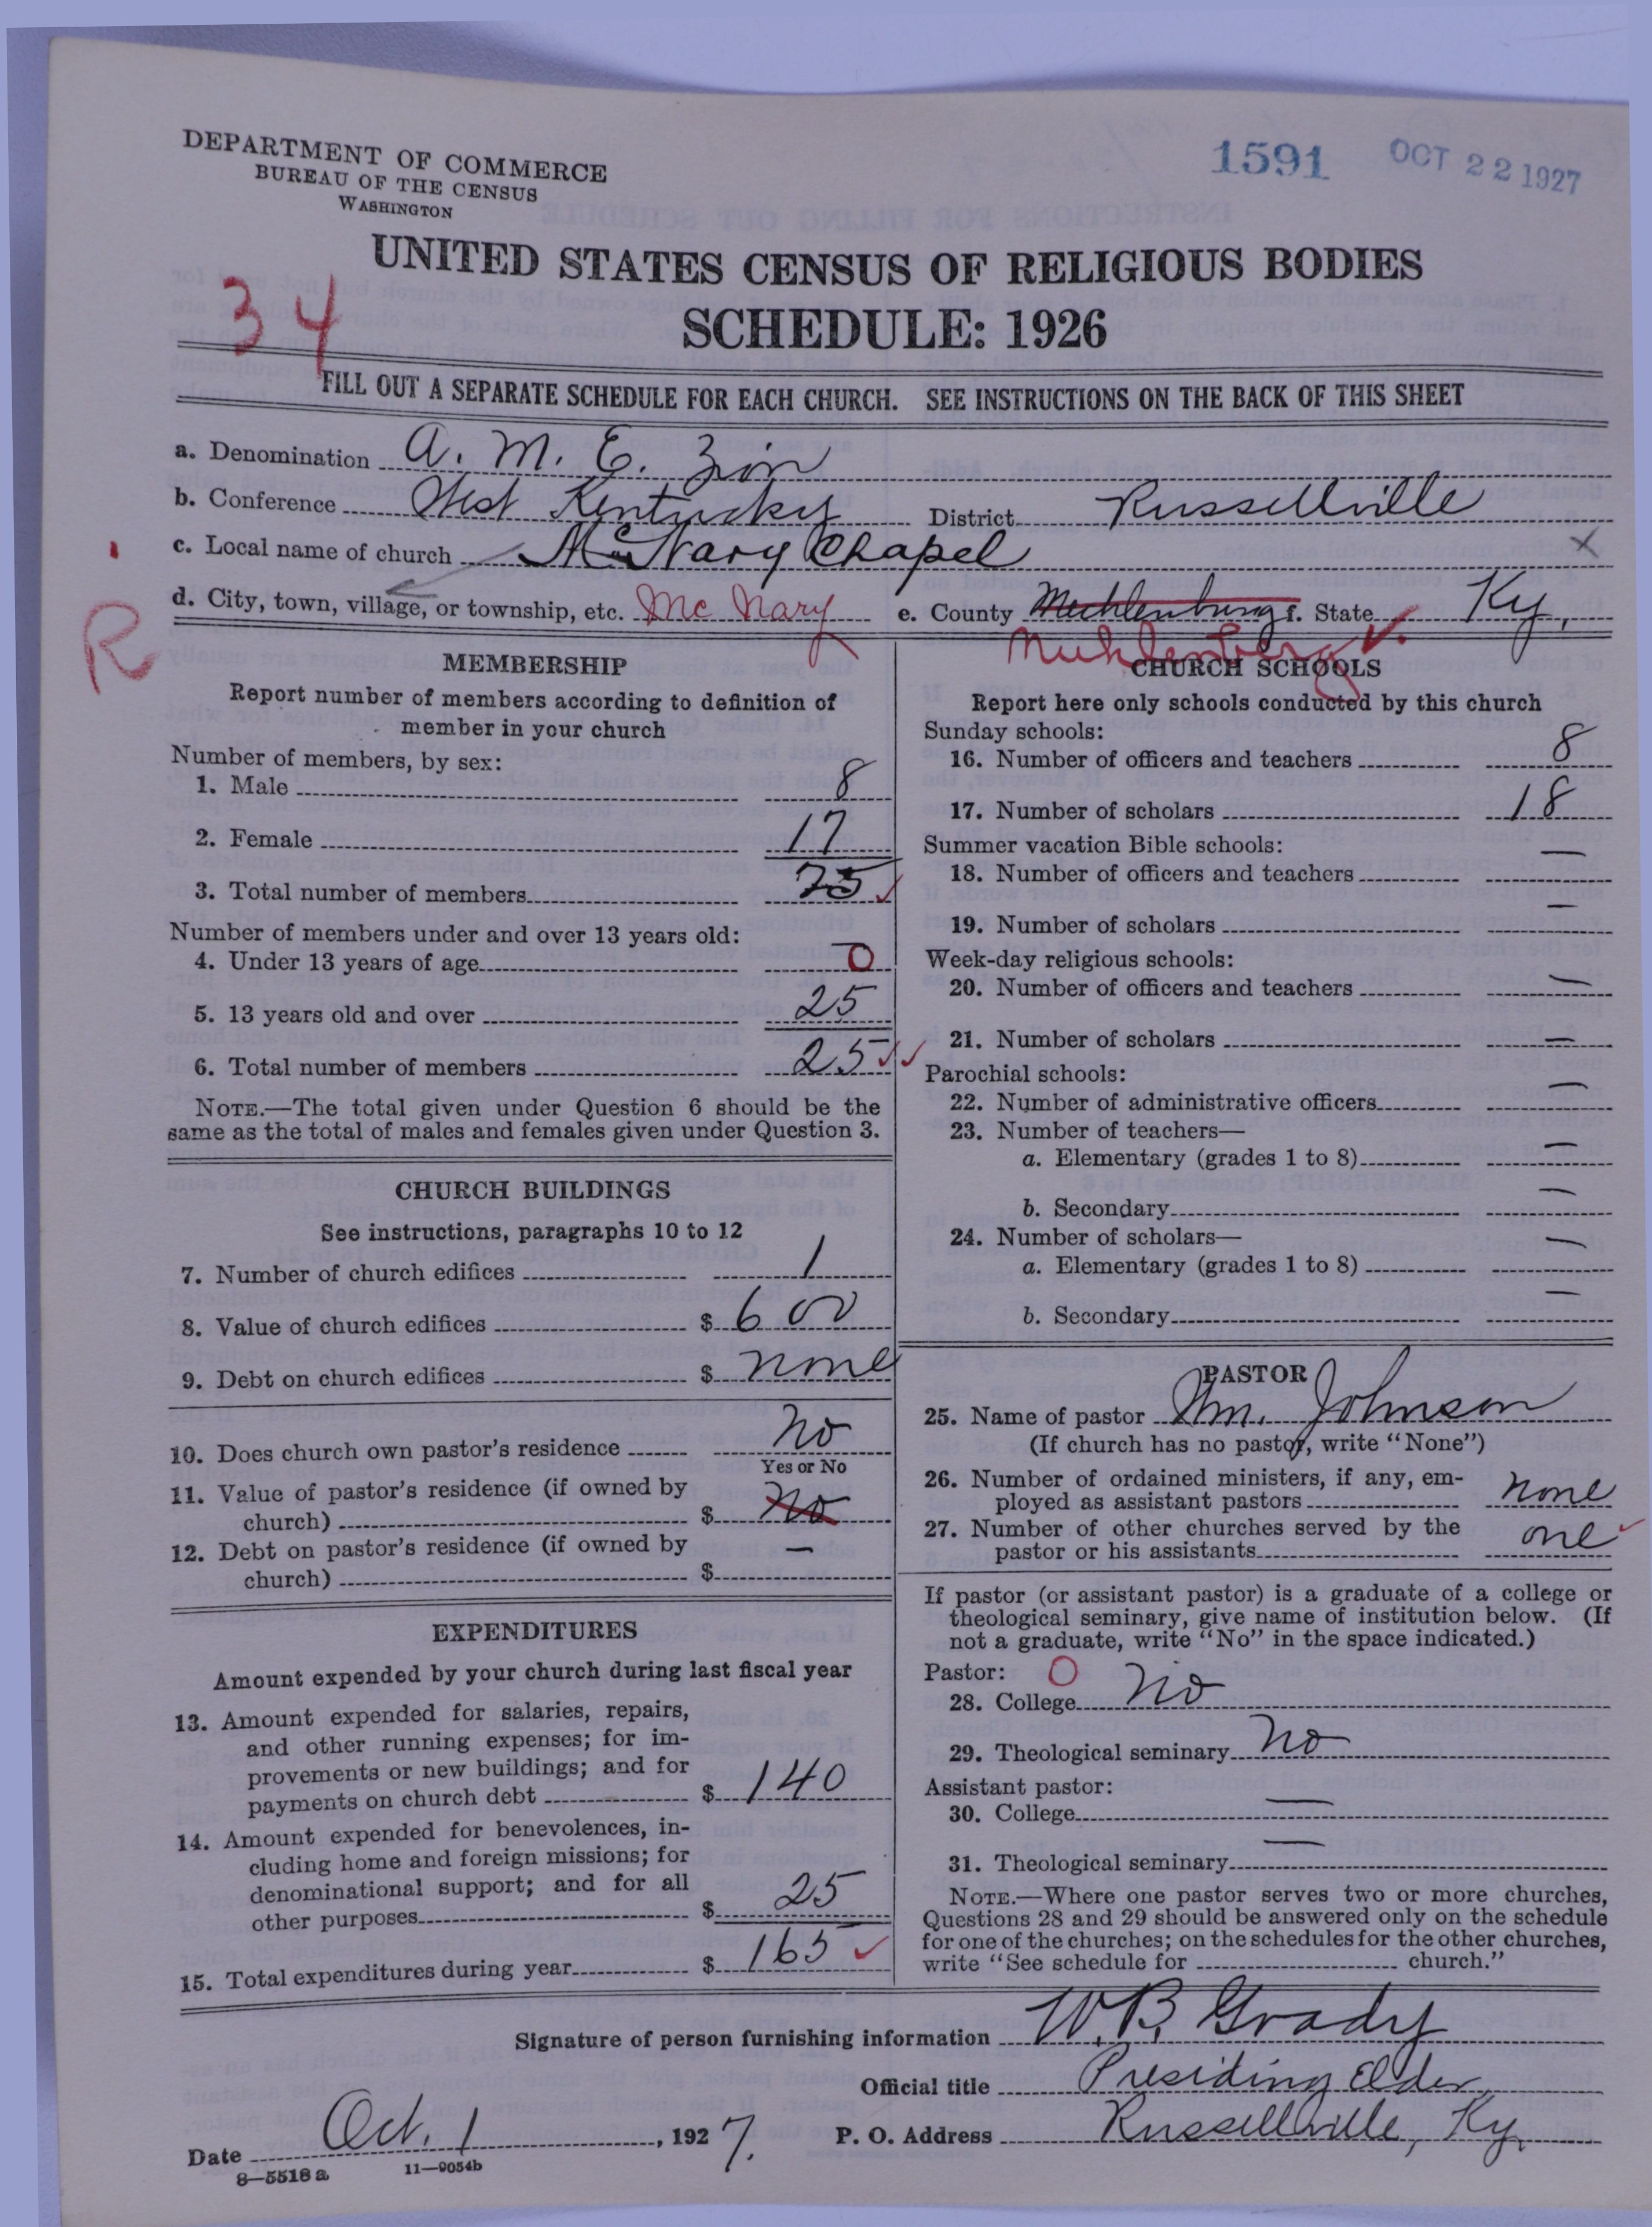 DEPARTMENT OF COMMERCE
BUREAU OF THE CENSUS
WASHINGTON
1591 OCT 22 1927
UNITED STATES CENSUS OF RELIGIOUS BODIES
SCHEDULE: 1926
34
FILL OUT A SEPARATE SCHEDULE FOR EACH CHURCH. SEE INSTRUCTIONS ON THE BACK OF THIS SHEET
a. Denomination A. M. E. Zion
b. Conference West Kentucky District Russellville
c. Local name of church McNary Chapel X
d. City, town, village, or township, etc. Mc Nary e. County Muchlenburg f. State Ky,
Muhlenberg
R
MEMBERSHIP
Report number of members according to definition of
member in your church
Number of members, by sex:
1. Male 8
2. Female 17
3. Total number of members 25
Number of members under and over 13 years old:
4. Under 13 years of age 0
5. 13 years old and over 25
6. Total number of members 25
NOTE.—The total given under Question 6 should be the
same as the total of males and females given under Question 3.
CHURCH BUILDINGS
See instructions, paragraphs 10 to 12
7. Number of church edifices 1
8. Value of church edifices $ 600
9. Debt on church edifices $ none
10. Does church own pastor's residence No
Yes or No
11. Value of pastor's residence (if owned by
church) $ No
12. Debt on pastor's residence (if owned by
church) $ —
EXPENDITURES
Amount expended by your church during last fiscal year
13. Amount expended for salaries, repairs,
and other running expenses; for im-
provements or new buildings; and for
payments on church debt $ 140
14. Amount expended for benevolences, in-
cluding home and foreign missions; for
denominational support; and for all
other purposes $ 25
15. Total expenditures during year $ 165
CHURCH SCHOOLS
Report here only schools conducted by this church
Sunday schools:
16. Number of officers and teachers 8
17. Number of scholars 18
Summer vacation Bible schools:
18. Number of officers and teachers —
19. Number of scholars —
Week-day religious schools:
20. Number of officers and teachers —
21. Number of scholars —
Parochial schools:
22. Number of administrative officers —
23. Number of teachers—
a. Elementary (grades 1 to 8) —
b. Secondary —
24. Number of scholars—
a. Elementary (grades 1 to 8) —
b. Secondary —
PASTOR
25. Name of pastor Wm. Johnson
(If church has no pastor, write "None")
26. Number of ordained ministers, if any, em-
ployed as assistant pastors none
27. Number of other churches served by the
pastor or his assistants one
If pastor (or assistant pastor) is a graduate of a college or
theological seminary, give name of institution below. (If
not a graduate, write "No" in the space indicated.)
Pastor: O
28. College No
29. Theological seminary No
Assistant pastor:
30. College —
31. Theological seminary —
NOTE.—Where one pastor serves two or more churches,
Questions 28 and 29 should be answered only on the schedule
for one of the churches; on the schedules for the other churches,
write "See schedule for church."
Signature of person furnishing information W. B. Grady
Official title Presiding Elder
Date Oct. 1, 1927. P. O. Address Russellville, Ky.
8—5518 a 11—9054b